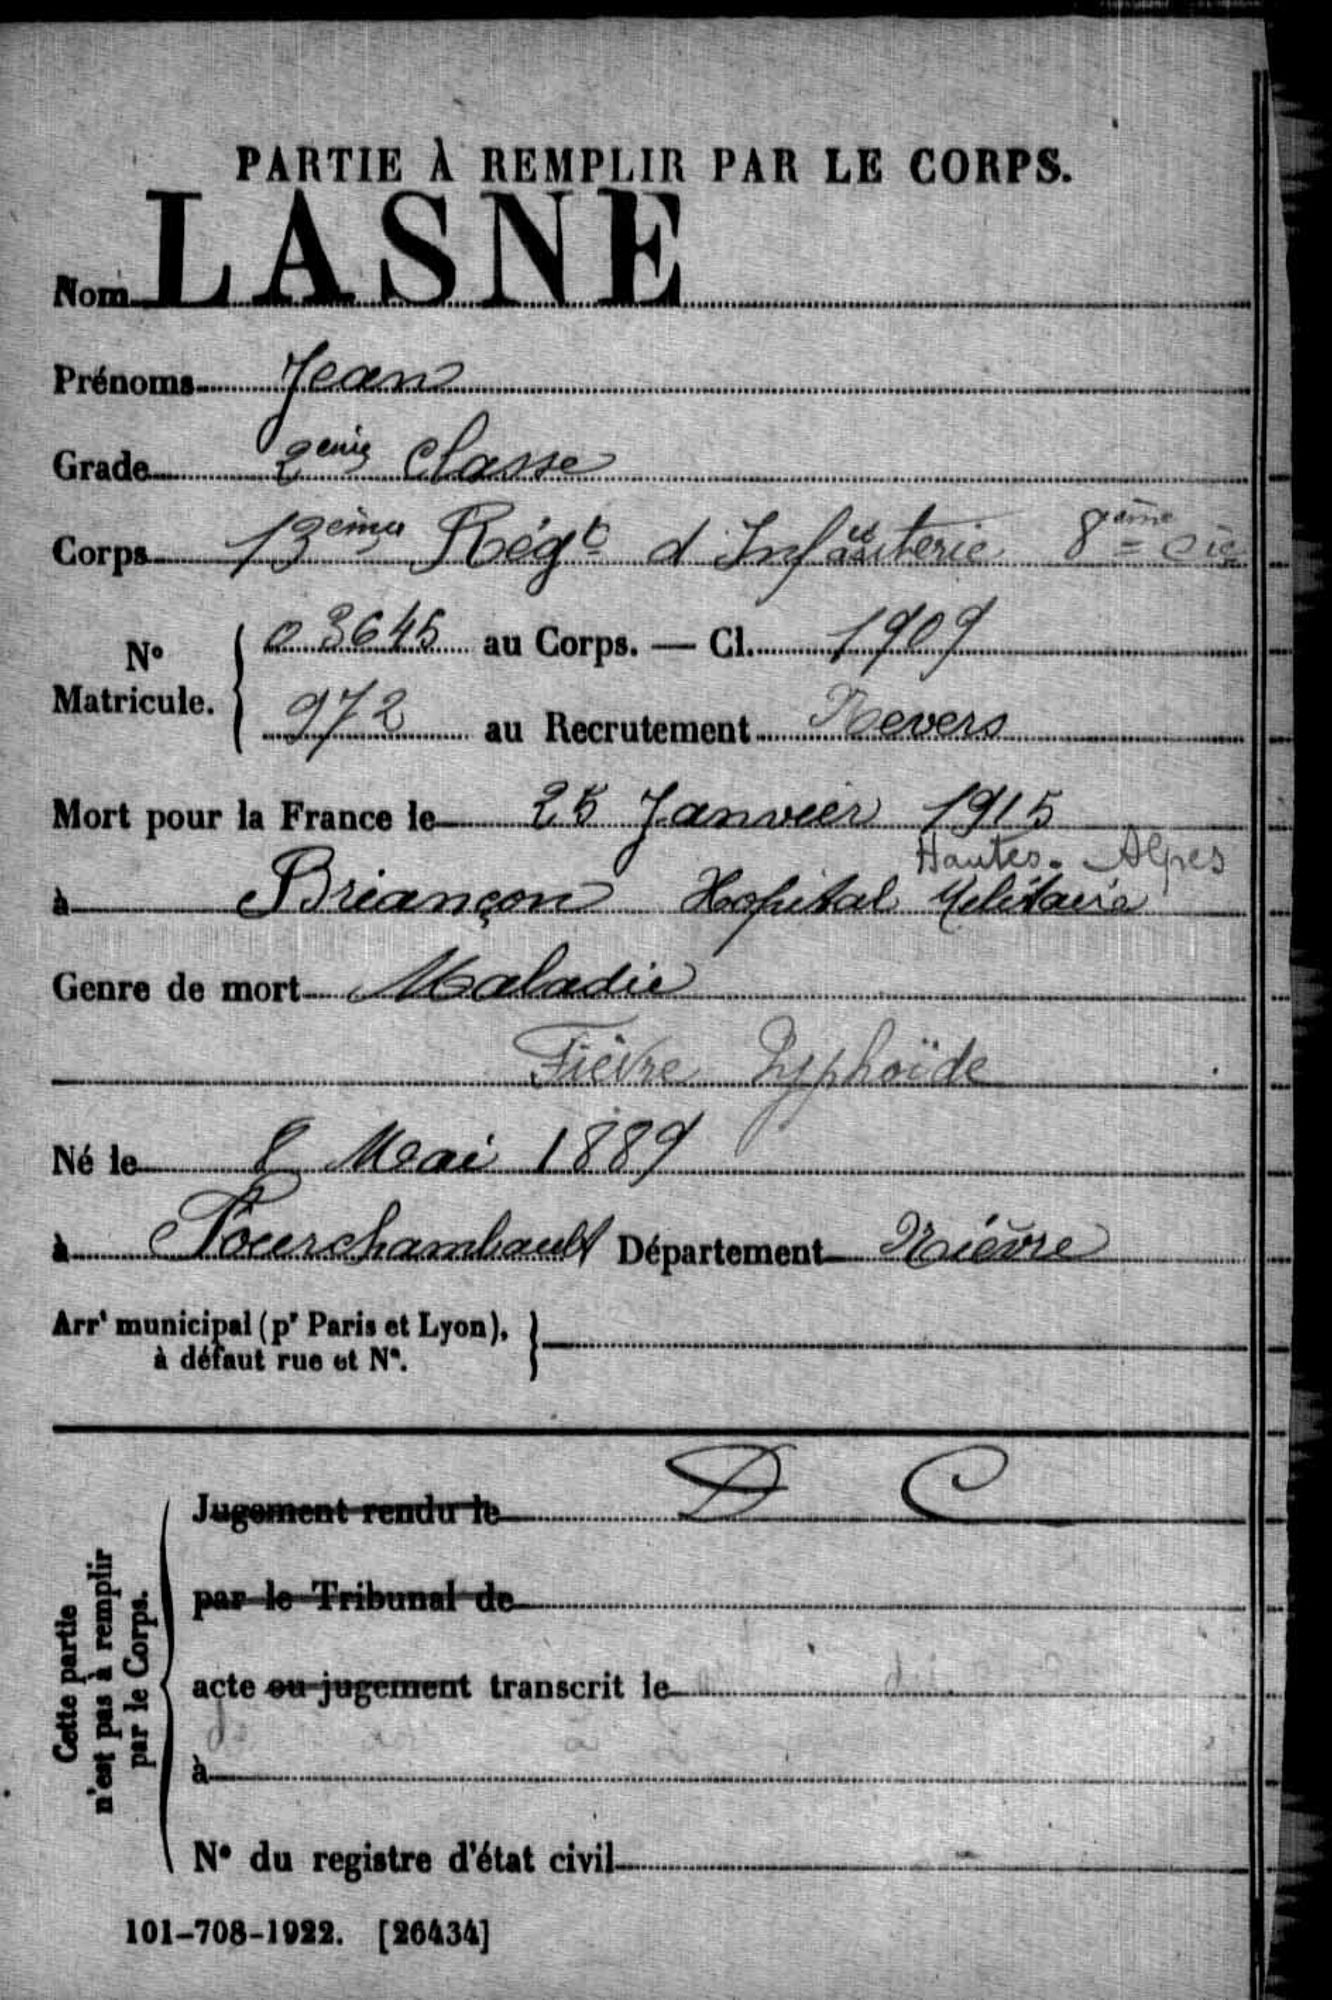 PARTIE À REMPLIR PAR LE CORPS.
Nom LASNE
Prénoms Jean
Grade 2eme Classe
Corps 13ème Régt d'Infanterie 8ème Cie
N° Matricule. 03645 au Corps. — Cl. 1909
972 au Recrutement Nevers
Mort pour la France le 25 Janvier 1915
Hautes-Alpes
à Briançon Hopital Militaire
Genre de mort Maladie
Fièvre Typhoïde
Né le 8 Mai 1889
à Fourchambault Département Nièvre
Arrt municipal (pr Paris et Lyon),
à défaut rue et N°.
Cette partie
n'est pas à remplir
par le Corps.
Jugement rendu le D C
par le Tribunal de
acte ou jugement transcrit le
à
N° du registre d'état civil
101-708-1922. [26434]